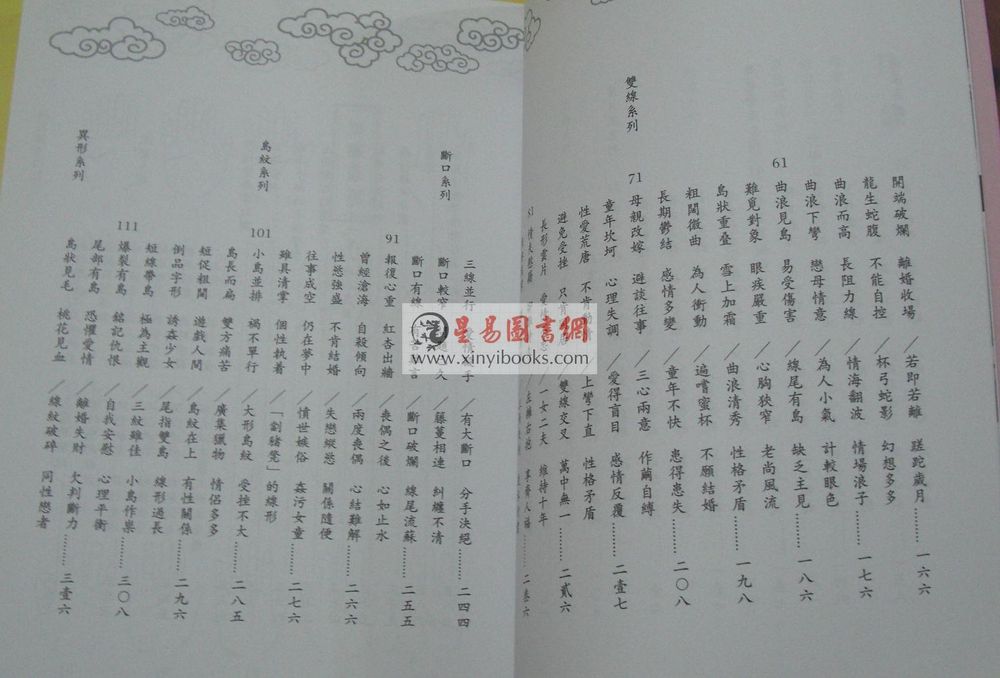 61
開端破爛 離婚收場／若即若離 蹉跎歲月……一六六
龍生蛇腹 不能自控／杯弓蛇影 幻想多多
曲浪而高 長阻力線／情海翻波 情場浪子……一七六
曲浪下彎 戀母情意／為人小氣 計較眼色
曲浪見島 易受傷害／線尾有島 缺乏主見……一八六
難覓對象 眼疾嚴重／心胸狹窄 老尚風流
島狀重疊 雪上加霜／曲浪清秀 性格矛盾……一九八
粗闊微曲 為人衝動／遍嚐蜜杯 不願結婚
長期鬱結 感情多變／童年不快 患得患失……二〇八
雙線系列
71
母親改嫁 避談往事／三心兩意 作繭自縛
童年坎坷 心理失調／愛得盲目 感情反覆……二壹七
性愛荒唐 不肯／上彎下直 性格矛盾
避免受挫 只肯／雙線交叉 萬中無一……二貳六
長形雲片／一女二夫 維持十年
81
左擁右抱 享齊人福……二叁六
斷口系列
三線並行／有大斷口 分手決絕……二四四
斷口較窄 久／藤蔓相連 糾纏不清
斷口有線 言／斷口破爛 線尾流蘇……二五五
91
報復心重 紅杏出牆／喪偶之後 心如止水
曾經滄海 自殺傾向／兩度喪偶 心結難解……二六六
性慾強盛 不肯結婚／失戀縱慾 關係隨便
往事成空 仍在夢中／憤世嫉俗 姦污女童……二七六
雖具清掌 個性執着／「劏豬凳」的線形
島紋系列
101
小島並排 禍不單行／大形島紋 受挫不大……二八五
島長而扁 雙方痛苦／廣集獵物 情侶多多
短促粗闊 遊戲人間／島紋在上 有性關係……二九六
倒品字形 誘姦少女／尾指雙島 線形過長
短線帶島 極為主觀／三紋雖佳 小島作祟……三〇八
111
爆裂有島 銘記仇恨／自我安慰 心理平衡
尾部有島 恐懼愛情／離婚失財 大判斷力……三壹六
異形系列
島狀見毛 桃花見血／線紋破碎 同性戀者
星易圖書網
www.xinyibooks.com